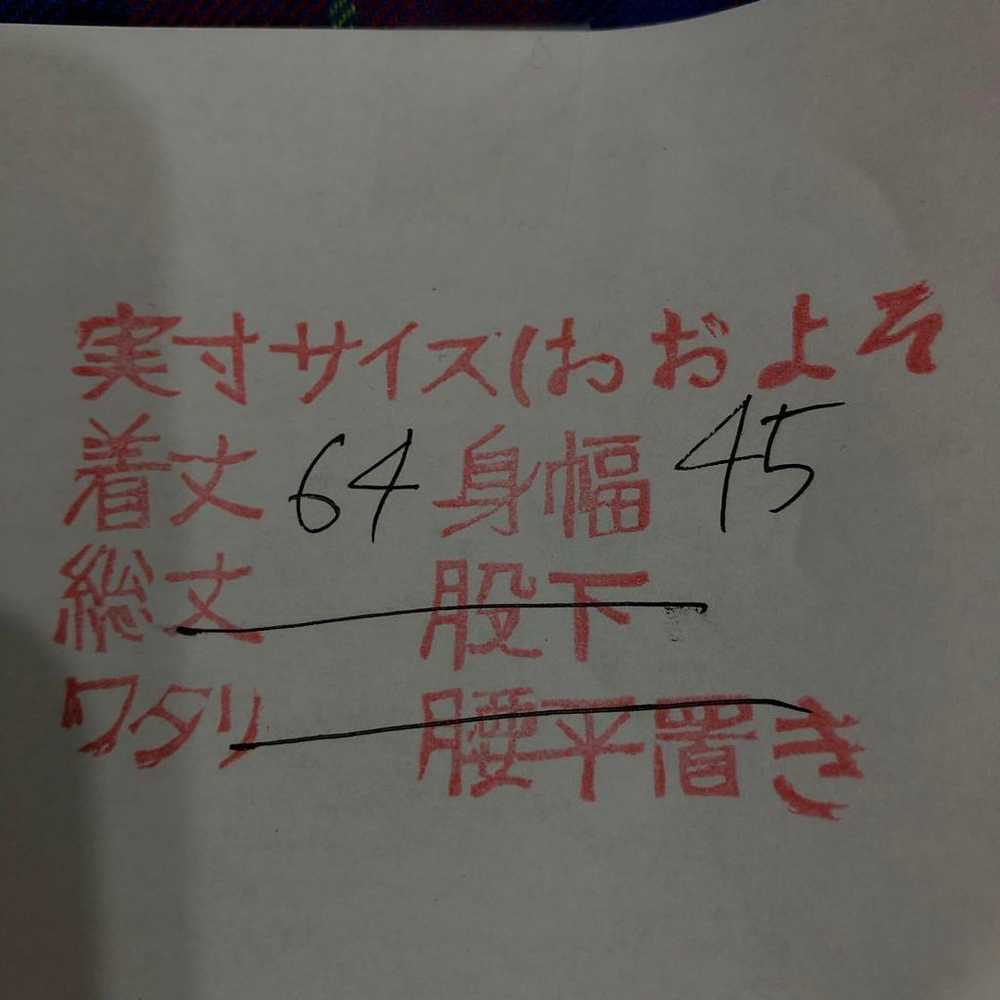 実寸サイズ(おおよそ
着丈 64 身幅 45
総丈 股下
ワタリ 腰平置き